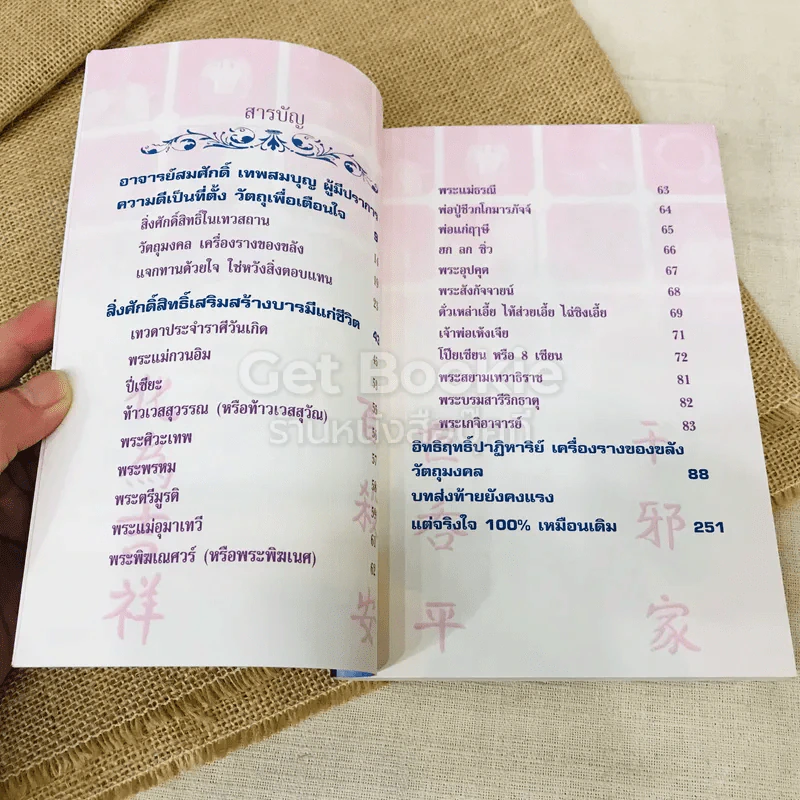 สารบัญ
อาจารย์สมศักดิ์ เทพสมบุญ ผู้มีปราการ
ความดีเป็นที่ตั้ง วัตถุเพื่อเตือนใจ 8
สิ่งศักดิ์สิทธิ์ในเทวสถาน
วัตถุมงคล เครื่องรางของขลัง 14
แจกทานด้วยใจ ใช่หวังสิ่งตอบแทน 19
สิ่งศักดิ์สิทธิ์เสริมสร้างบารมีแก่ชีวิต
เทวดาประจำราศีวันเกิด
พระแม่กวนอิม
ปี่เซียะ
ท้าวเวสสุวรรณ (หรือท้าวเวสสุวัณ)
พระศิวะเทพ
พระพรหม 57
พระตรีมูรติ 58
พระแม่อุมาเทวี 59
พระพิฆเณศวร์ (หรือพระพิฆเนศ)
62
พระแม่ธรณี 63
พ่อปู่ชีวกโกมารภัจจ์ 64
พ่อแก่ฤๅษี 65
ฮก ลก ซิ่ว 66
พระอุปคุต 67
พระสังกัจจายน์ 68
ตั่วเหล่าเอี้ย ไท้ส่วยเอี้ย ไฉ่ซิงเอี้ย 69
เจ้าพ่อเห้งเจีย 71
โป๊ยเซียน หรือ 8 เซียน 72
พระสยามเทวาธิราช 81
พระบรมสารีริกธาตุ 82
พระเกจิอาจารย์ 83
อิทธิฤทธิ์ปาฏิหาริย์ เครื่องรางของขลัง
วัตถุมงคล 88
บทส่งท้ายยังคงแรง
แต่จริงใจ 100% เหมือนเดิม 251
Get Bookie
ร้านหนังสือบุ๊คกี้
化
為
吉
祥
百
殺
安
世
否
平
干
邪
家